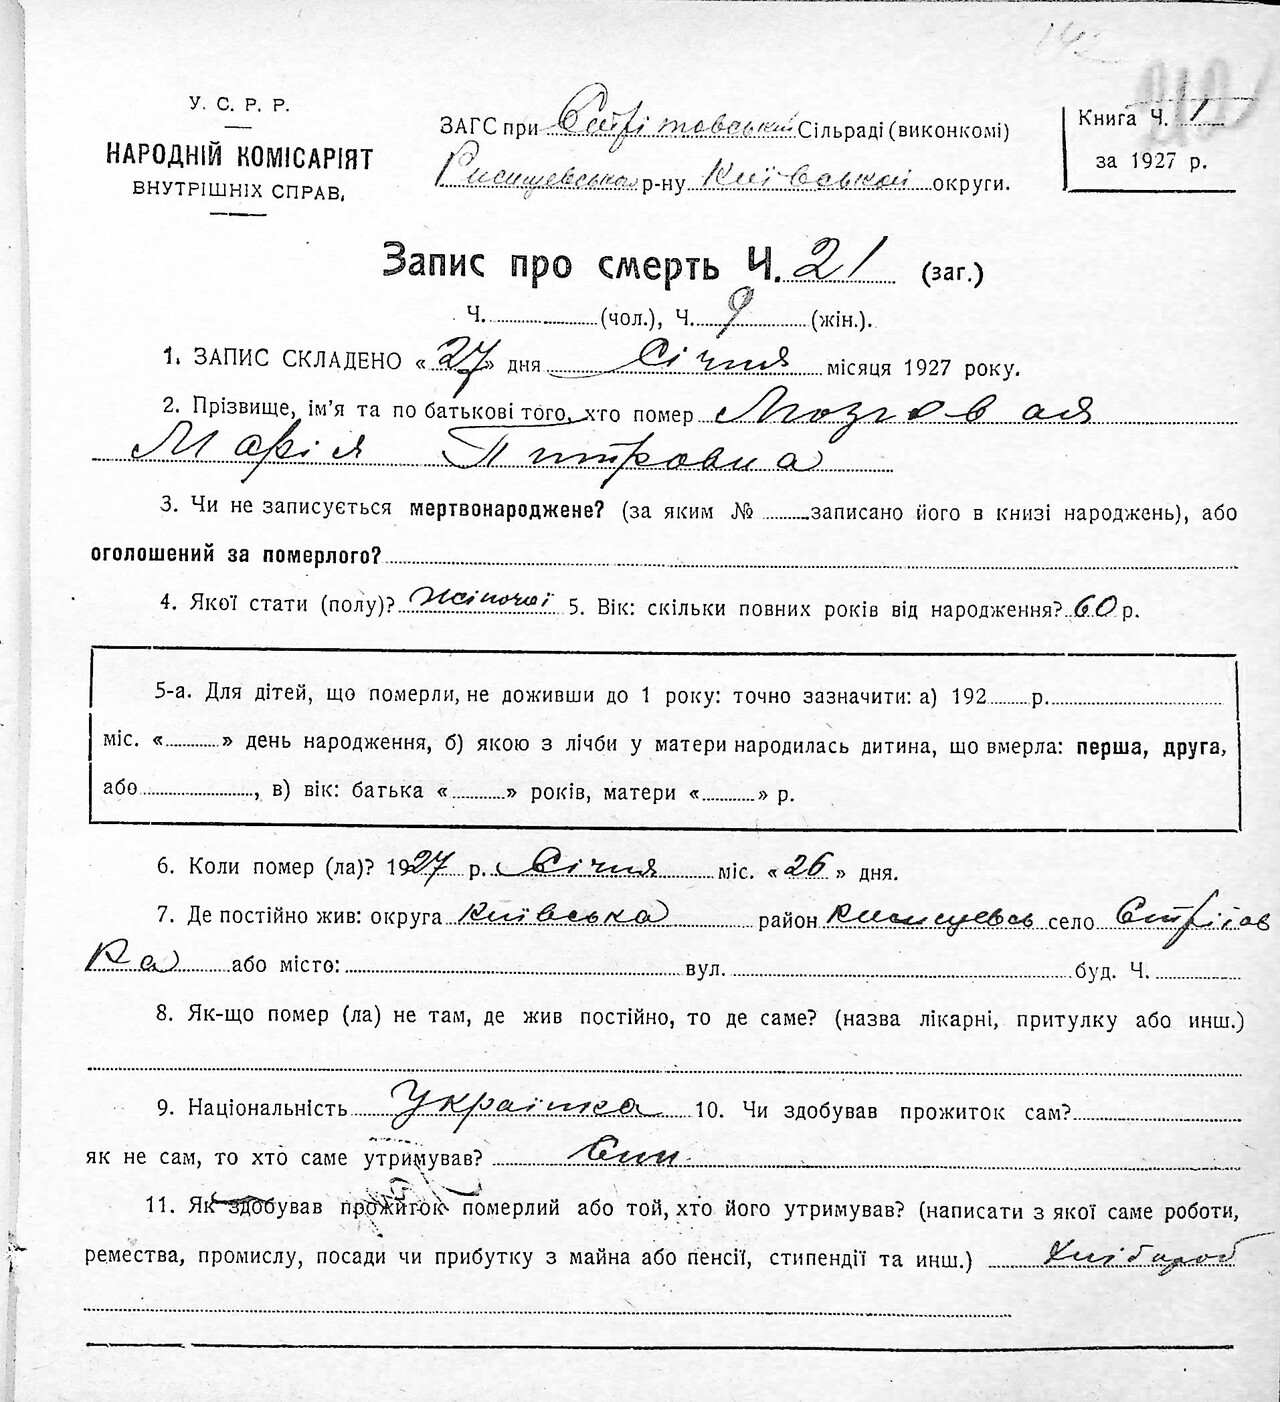 142
У. С. Р. Р.
НАРОДНІЙ КОМІСАРІЯТ
ВНУТРІШНІХ СПРАВ,
ЗАГС при Стрітовський Сільраді (виконкомі)
р-ну Київської округи.
Книга Ч. 1
за 1927 р.
Запис про смерть Ч. 21 (заг.)
Ч. (чол.), Ч. 9 (жін.).
1. ЗАПИС СКЛАДЕНО «27» дня Січня місяця 1927 року.
2. Прізвище, ім’я та по батькові того, хто помер Мозговая
Марія Питровна
3. Чи не записується мертвонароджене? (за яким № записано його в книзі народжень), або
оголошений за померлого?
4. Якої стати (полу)? Жіночої 5. Вік: скільки повних років від народження? 60 р.
5-а. Для дітей, що померли, не доживши до 1 року: точно зазначити: а) 192 р.
міс. « » день народження, б) якою з лічби у матери народилась дитина, що вмерла: перша, друга,
або , в) вік: батька « » років, матери « » р.
6. Коли помер (ла)? 1927 р. Січня міс. «26» дня.
7. Де постійно жив: округа Київська район село Стрітов
ка або місто: вул. буд. Ч.
8. Як-що помер (ла) не там, де жив постійно, то де саме? (назва лікарні, притулку або инш.)
9. Національність Українка 10. Чи здобував прожиток сам?
як не сам, то хто саме утримував? Син.
11. Як здобував прожиток померлий або той, хто його утримував? (написати з якої саме роботи,
ремества, промислу, посади чи прибутку з майна або пенсії, стипендії та инш.) Хлібороб